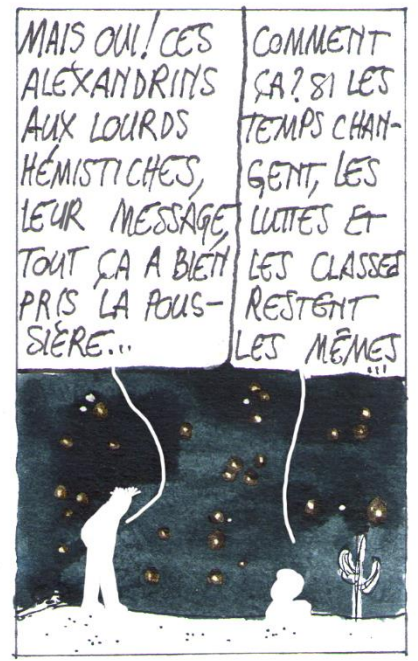 MAIS OUI! CES
ALEXANDRINS
AUX LOURDS
HÉMISTICHES,
LEUR MESSAGE,
TOUT ÇA A BIEN
PRIS LA POUS-
SIÈRE...
COMMENT
ÇA? SI LES
TEMPS CHAN-
GENT, LES
LUTTES ET
LES CLASSES
RESTENT
LES MÊMES
...